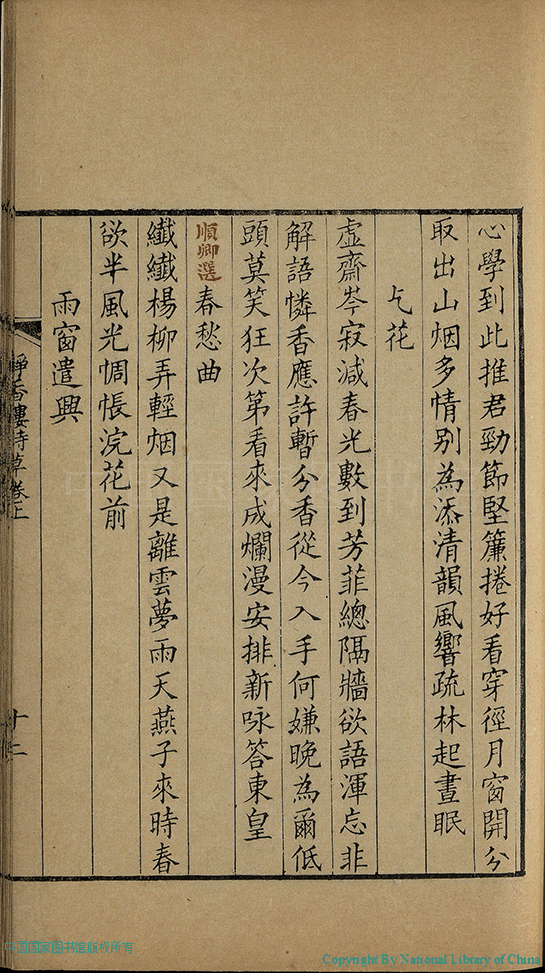 心學到此推君勁節堅簾捲好看穿徑月窗開分
取出山烟多情别為添清韻風響疏林起晝眠
乞花
虛齋岑寂減春光數到芳菲總隔牆欲語渾忘非
解語憐香應許暫分香從今入手何嫌晚為爾低
頭莫笑狂次第看來成爛漫安排新咏答東皇
順卿選
春愁曲
纖纖楊柳弄輕烟又是離雲夢雨天燕子來時春
欲半風光惆悵浣花前
雨窗遣興
靜香樓詩草卷上
十二
中国国家图书馆版权所有
Copyright By National Library of China